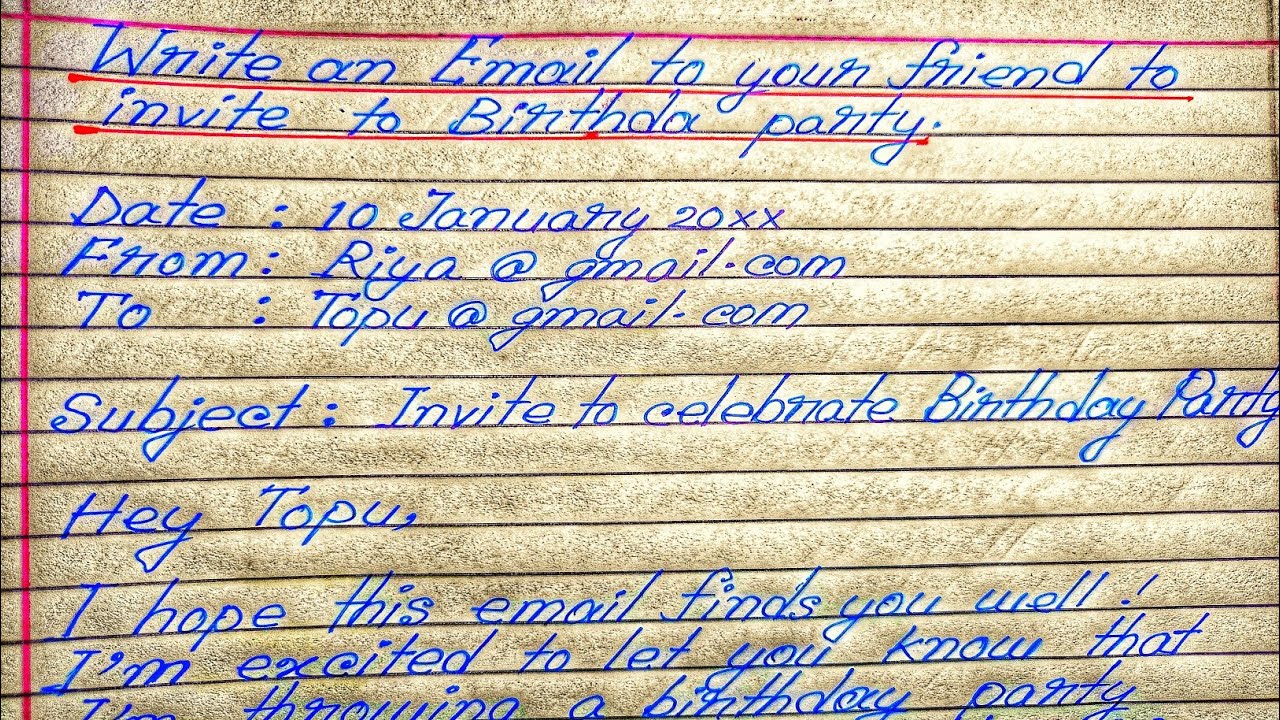 Write an Email to your friend to
invite to Birthda party.
Date : 10 January 20xx
From : Riya @ gmail.com
To : Topu @ gmail.com
Subject : Invite to celebrate Birthday Party
Hey Topu,
I hope this email finds you well!
I'm excited to let you know that
I'm throwing a birthday party